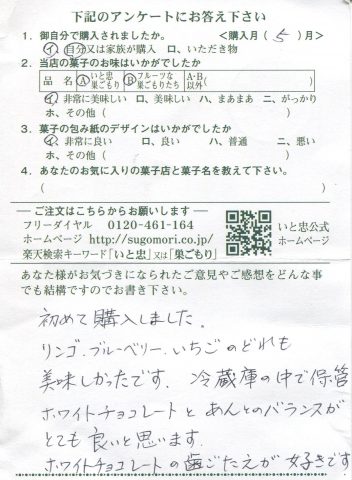 下記のアンケートにお答え下さい
1. 御自分で購入されましたか。 <購入月(5)月>
イ、自分又は家族が購入 ロ、いただき物
2. 当店の菓子のお味はいかがでしたか
品名 Ⓐいと忠巣ごもり Ⓑフルーツな巣ごもりたち A・B以外( )
イ、非常に美味しい ロ、美味しい ハ、まあまあ ニ、がっかり
ホ、その他( )
3. 菓子の包み紙のデザインはいかがでしたか
イ、非常に良い ロ、良い ハ、普通 ニ、悪い
ホ、その他( )
4. あなたのお気に入りの菓子店と菓子名を教えて下さい。
( )
― ご注文はこちらからお願いします ―
フリーダイヤル 0120-461-164
ホームページ http://sugomori.co.jp/
楽天検索キーワード「いと忠」又は「巣ごもり」
いと忠公式
ホームページ
あなた様がお気づきになられたご意見やご感想をどんな事
でも結構ですのでお書き下さい。
初めて購入しました。
リンゴ、ブルーベリー、いちごのどれも
美味しかったです。冷蔵庫の中で保管
ホワイトチョコレートとあんとのバランスが
とても良いと思います。
ホワイトチョコレートの歯ごたえが好きです